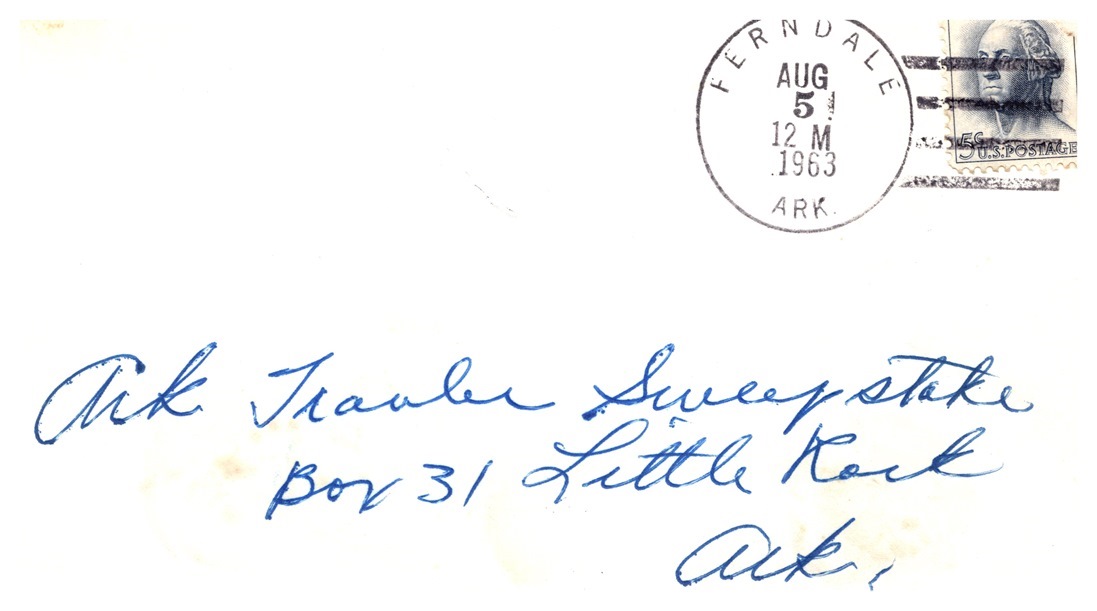 FERNDALE
AUG
5
12 M
1963
ARK.
5¢ U.S. POSTAGE
Ark Travler Sweepstake
Box 31 Little Rock
Ark.